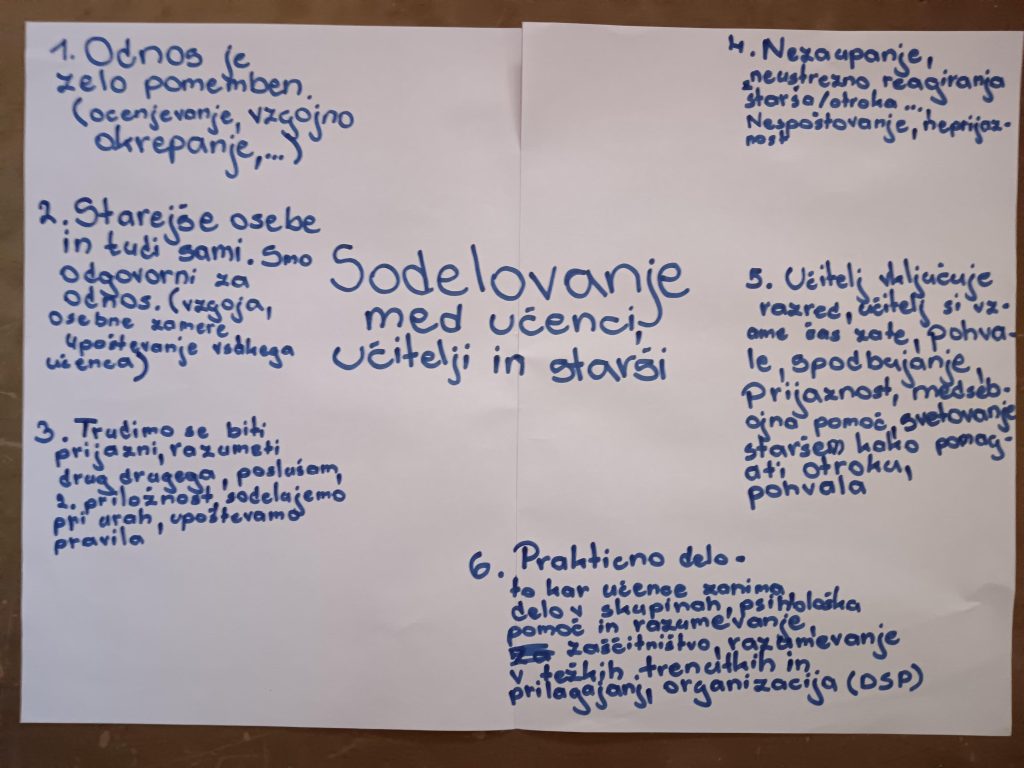 Sodelovanje
med učenci,
učitelji in starši
1. Odnos je
zelo pomemben.
(ocenjevanje, vzgojno
okrepanje,...)
2. Starejše osebe
in tudi sami. Smo
odgovorni za
odnos. (vzgoja,
osebne zamere,
upoštevanje vsakega
učenca)
3. Trudimo se biti
prijazni, razumeti
drug drugega, poslušam,
2. priložnost, sodelujemo
pri urah, upoštevamo
pravila
4. Nezaupanje,
neustrezno reagiranja
starša/otroka...,
Nespoštovanje, neprijaz-
nost
5. Učitelj vključuje
razred, učitelj si vz-
ame čas zate, pohva-
le, spodbujanje,
Prijaznost, medseb-
ojna pomoč, svetovanje
staršem kako pomag-
ati otroku,
pohvala
6. Prakticno delo -
to kar učence zanima,
delo v skupinah, psihološka
pomoč in razumevanje,
za zaščitništvo, razumevanje
v težkih trenutkih in
prilagajanj, organizacija (DSP)